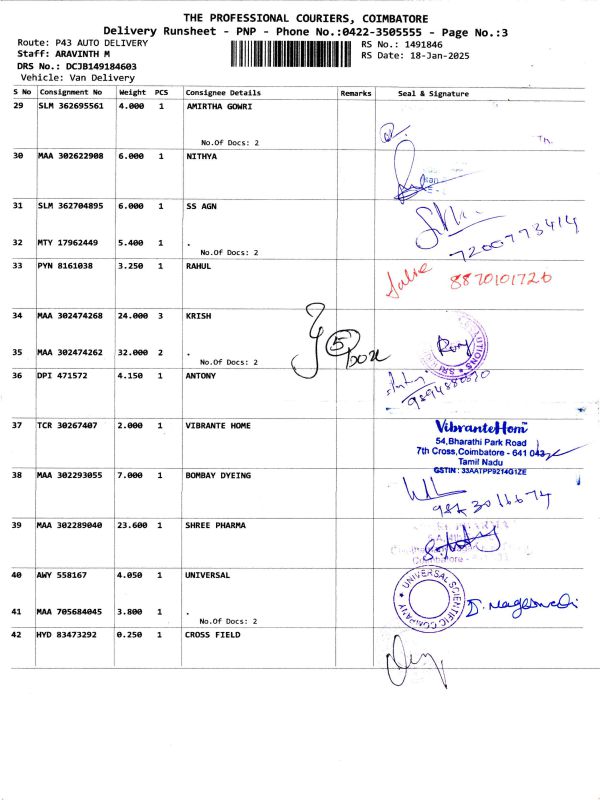 THE PROFESSIONAL COURIERS, COIMBATORE
Delivery Runsheet - PNP - Phone No.:0422-3505555 - Page No.:3
Route: P43 AUTO DELIVERY
RS No.: 1491846
Staff: ARAVINTH M
RS Date: 18-Jan-2025
DRS No.: DCJB149184603
Vehicle: Van Delivery
S No Consignment No Weight PCS Consignee Details Remarks Seal & Signature
29 SLM 362695561 4.000 1 AMIRTHA GOWRI
No.Of Docs: 2
30 MAA 302622908 6.000 1 NITHYA
31 SLM 362704895 6.000 1 SS AGN
7200773414
32 MTY 17962449 5.400 1 .
No.Of Docs: 2
33 PYN 8161038 3.250 1 RAHUL
8870101726
34 MAA 302474268 24.000 3 KRISH
5 box
35 MAA 302474262 32.000 2 .
No.Of Docs: 2
36 DPI 471572 4.150 1 ANTONY
37 TCR 30267407 2.000 1 VIBRANTE HOME
VibranteHom
54,Bharathi Park Road
7th Cross,Coimbatore - 641 043
Tamil Nadu
GSTIN : 33AATPP9214G1ZE
38 MAA 302293055 7.000 1 BOMBAY DYEING
39 MAA 302289040 23.600 1 SHREE PHARMA
40 AWY 558167 4.050 1 UNIVERSAL
UNIVERSAL SCIENTIFIC COMPANY
41 MAA 705684045 3.800 1 .
No.Of Docs: 2
42 HYD 83473292 0.250 1 CROSS FIELD